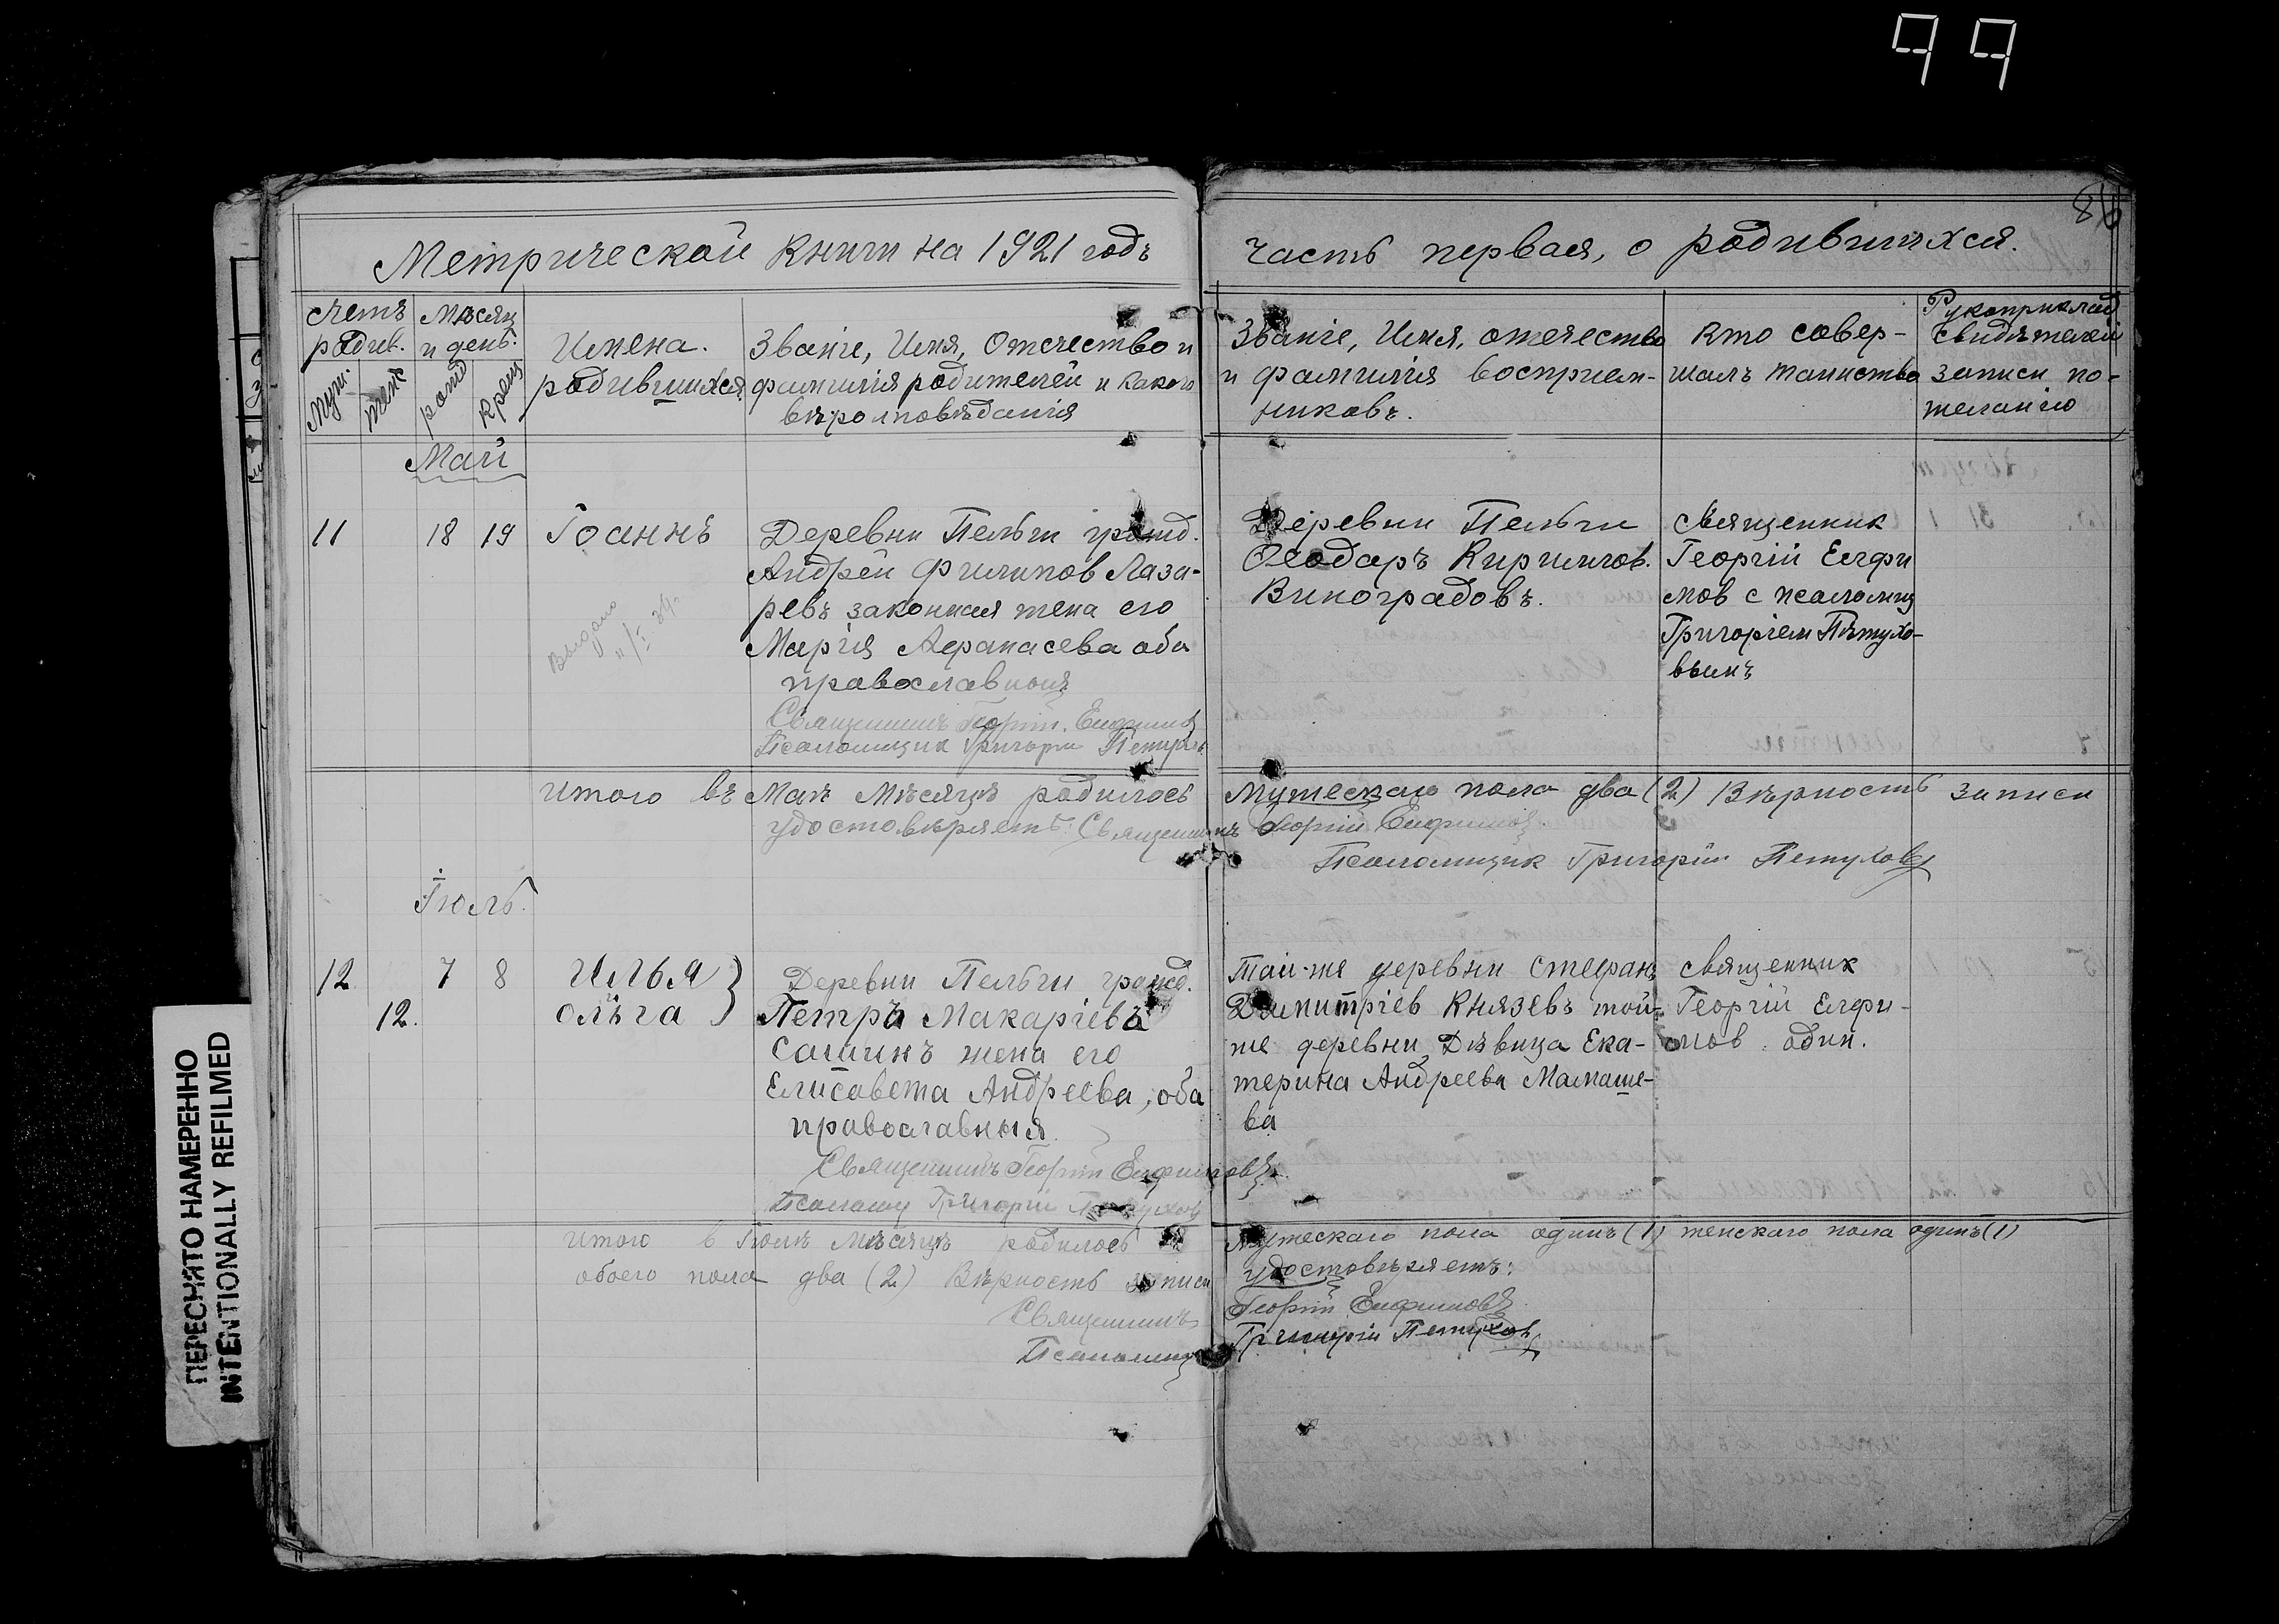 99
86
Метрической Книги на 1921 годъ
часть первая, о родившихся.
Счетъ родив.
Муж.
женс
Мѣсяц и день.
рожд
Крещ
Имена.
родившихся
Званіе, Имя, Отечество и
фамилія родителей и какого
вѣроисповѣданія
Званіе, Имя, отечество
и фамилія восприем-
никовъ.
Кто совер-
шалъ таинство
Рукоприклад
свидѣтелей
записи по-
желанію
Май
11
18 19
Іоаннъ
Деревни Пельги гражд.
Андрей Филипов Лаза-
ревъ законная жена его
Марія Афанасева оба
православныя
Священникъ Георгій Елфимовъ
Псаломщик Григорій Петуховъ
Выдано
Деревни Пельги
Ѳеодоръ Кирилов.
Виноградовъ.
Священник
Георгій Елфи
мов с псаломщ
Григоріем Пѣтухо-
вымъ
Итого въ Маѣ Мѣсяцѣ родилось
Мужескаго пола два (2) Вѣрность записи
удостовѣряетъ: Священникъ Георгій Елфимовъ
Псаломщик Григорій Петуховъ
Іюль.
12
12.
7 8
Илья
Ольга
Деревни Пельги гражд.
Петръ Макаріевъ
Сашинъ жена его
Елисавета Андреева, оба
православныя
Священникъ Георгій Елфимовъ
Псаломщ Григорій Петухов
Той-же деревни Стефанъ
Димитріев Князевъ той-
же деревни Дѣвица Ека-
терина Андреева Мамаше-
ва
Священник
Георгій Елфи-
мов один.
Итого в Іюлѣ Мѣсяцѣ родилось
Мужескаго пола одинъ (1) женскаго пола одинъ (1)
обоего пола два (2) Вѣрность записи
удостовѣряетъ:
Священникъ
Георгій Елфимовъ
Псаломщ
Григорій Петухов
ПЕРЕСНЯТО НАМЕРЕННО
INTENTIONALLY REFILMED